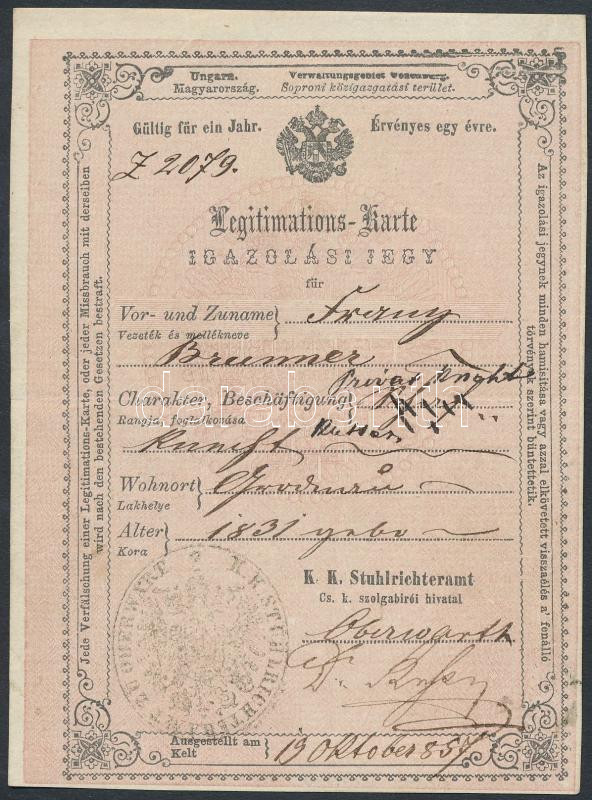 Ungarn. Verwaltungsgebiet Oedenburg.
Magyarország. Soproni közigazgatási terület.
Gültig für ein Jahr. Érvényes egy évre.
Z 2079.
Legitimations-Karte
IGAZOLÁSI JEGY
für
Vor- und Zuname} Franz
Vezeték és mellékneve
Brunner
Charakter, Beschäftigung}
Rangja foglalkozása
Wohnort}
Lakhelye
Alter} 1831 gebo
Kora
K. K. Stuhlrichteramt
Cs. k. szolgabirói hivatal
Oberwarth
Ausgestellt am} 19 Oktober 857
Kelt
Jede Verfälschung einer Legitimations-Karte, oder jeder Missbrauch mit derselben
wird nach den bestehenden Gesetzen bestraft.
Az igazolási jegynek minden hamisitása vagy azzal elkövetett visszaélés a' fonálló
törvények szerint büntettetik.
K.K. STUHLRICHTERAMT ZU OBERWART
darabanth